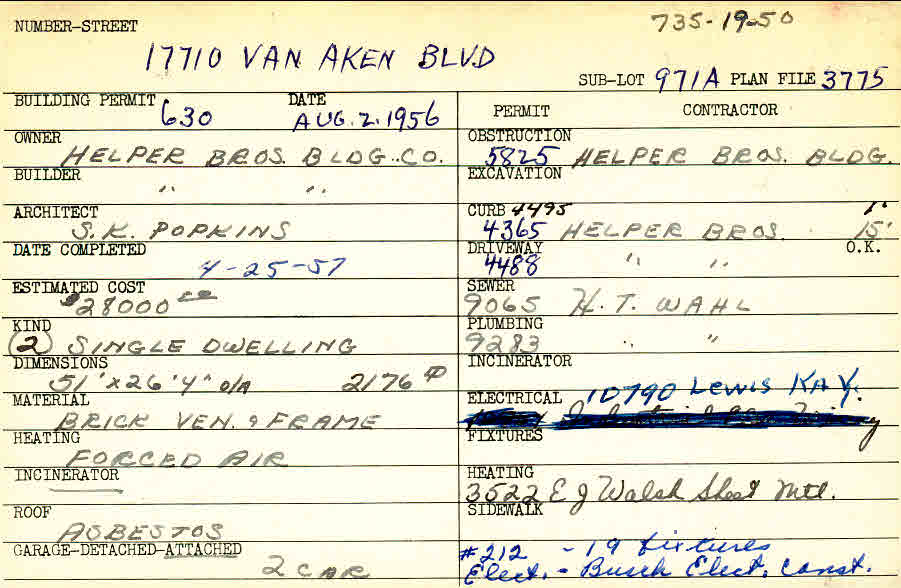 NUMBER-STREET 735-19-50
17710 VAN AKEN BLVD
SUB-LOT 971A PLAN FILE 3775
BUILDING PERMIT 630 DATE AUG. 2. 1956
OWNER
HELPER BROS. BLDG. CO.
BUILDER
" "
ARCHITECT
S.K. POPKINS
DATE COMPLETED
4-25-57
ESTIMATED COST
$28000 00
KIND
(2) SINGLE DWELLING
DIMENSIONS
51' x 26'4" O/A 2176
MATERIAL
BRICK VEN. & FRAME
HEATING
FORCED AIR
INCINERATOR
ROOF
ASBESTOS
GARAGE-DETACHED-ATTACHED
2 CAR
PERMIT CONTRACTOR
OBSTRUCTION
5825 HELPER BROS. BLDG.
EXCAVATION
CURB 4495 1'
4365 HELPER BROS. 15'
DRIVEWAY O.K.
4488 " "
SEWER
9065 H.T. WAHL
PLUMBING
9283 " "
INCINERATOR
ELECTRICAL 10790 Lewis Kay.
FIXTURES
HEATING
3522 E J Walsh Sheet Mtl.
SIDEWALK
#212 - 19 fixtures
Elect. - Busch Elect. Const.